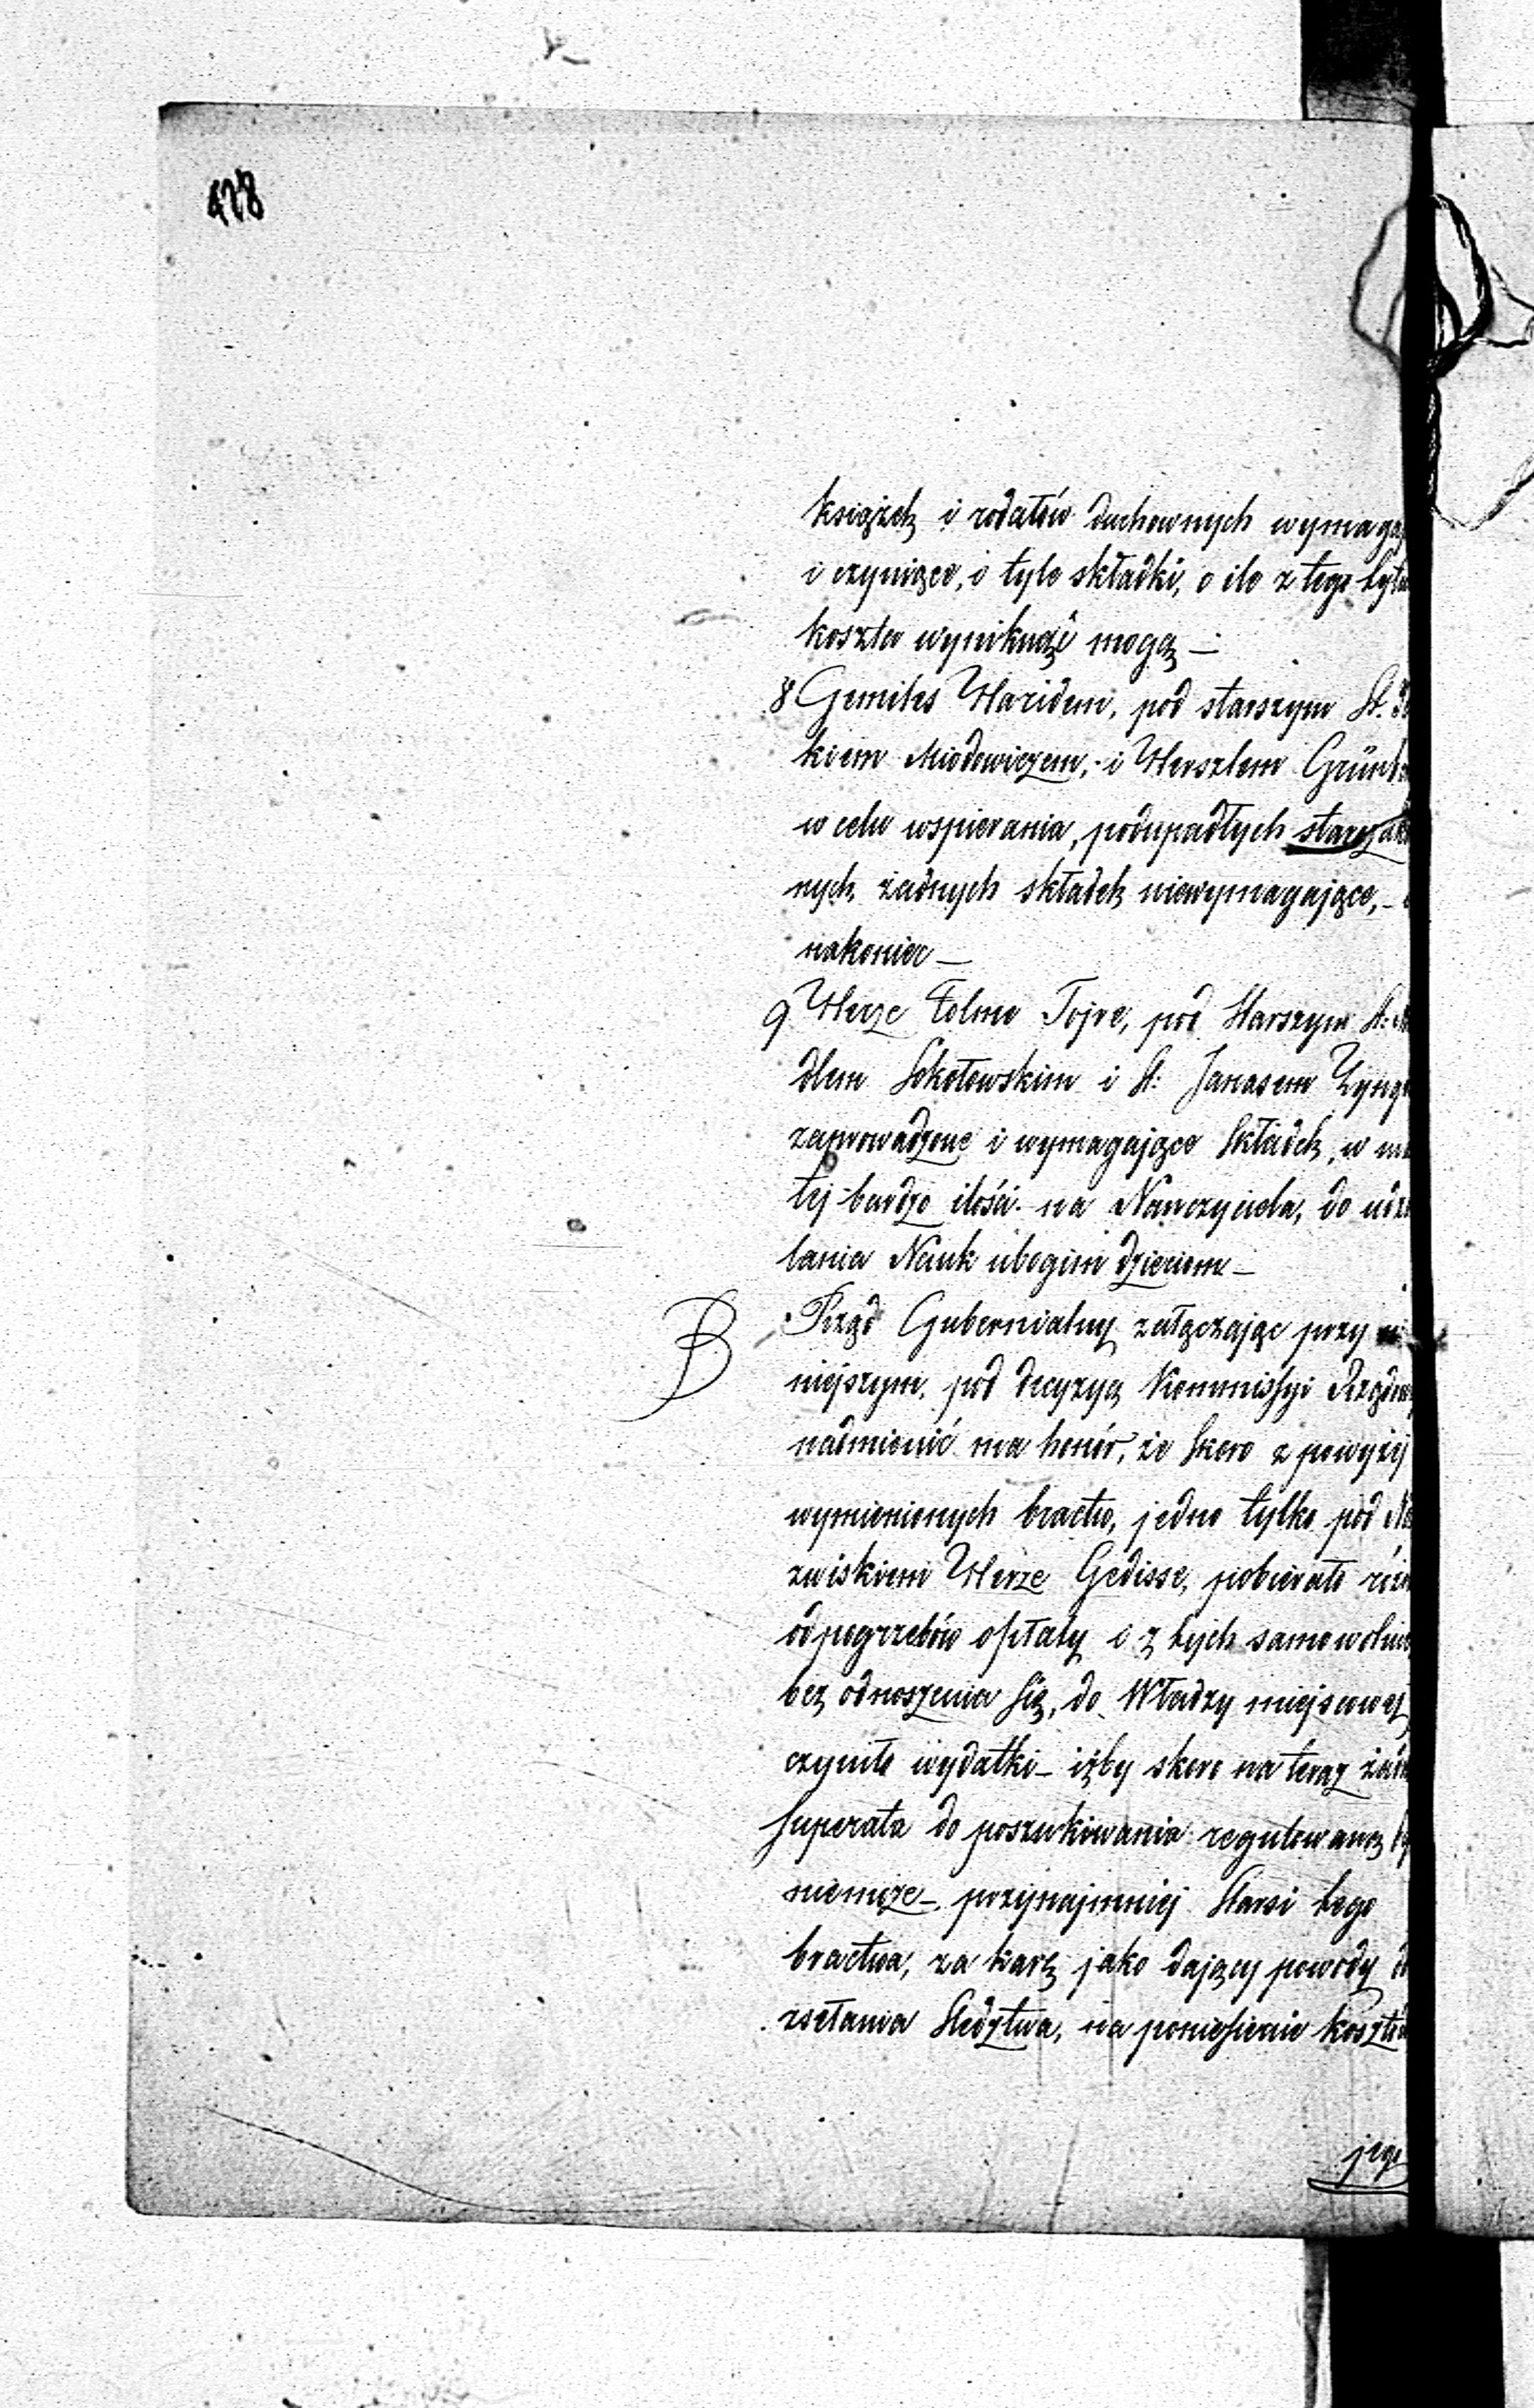 428
książek i rodałów duchownych wymaga
i czyniące, o tyle składki, o ile z tego tytu
koszta wyniknąć mogą —
8 Gemiles Hazidem, pod starszym St.
kiem Miodowiczem, i Herszlem Grünb
w celu wspierania, podupadłych starozak
nych żadnych składek niewymagające, –
nakoniec —
9 Herze Tolme Tojre, pod Starszym St:
dlem Sokołowskim i St: Janasem Zyng
zaprowadzone i wymagające Składek, w ma
łej bardzo ilości na Nauczyciela, do udzie
lania Nauk ubogim dzieciom —
Rząd Gubernialny załączając przy ni
niejszym, pod decyzyą Kommissyi Rządow
nadmienić ma honór, że Skoro z powyżej
wymienionych bractw, jedno tylko pod Na
zwiskiem Herze Gedisse, pobierało różn
od pogrzebów opłaty i z tych samowolnie
bez odnoszenia Się, do Władzy miejscowej
czyniło wydatki – iżby skoro na teraz żadn
Superata do poszukiwania regulowaną by
niemoże –. przynajmniej Starsi tego
bractwa, za karę jako dający powody do
zsełania Sledztwa, na poniesienie kosztów
jego